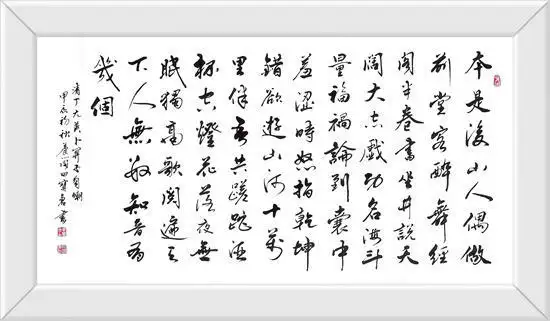 本是後山人偶做
前堂客醉舞經
閣半卷書坐井說天
闊大志戲功名海斗
量福禍論到囊中
羞澀時怒指乾坤
錯欲遊山河十萬
里伴吾共蹉跎酒
杯空燈花落夜無
眠獨高歌閱遍天
下人無數知音有
幾個
丁元英卜算子自嘲
甲辰初秋書